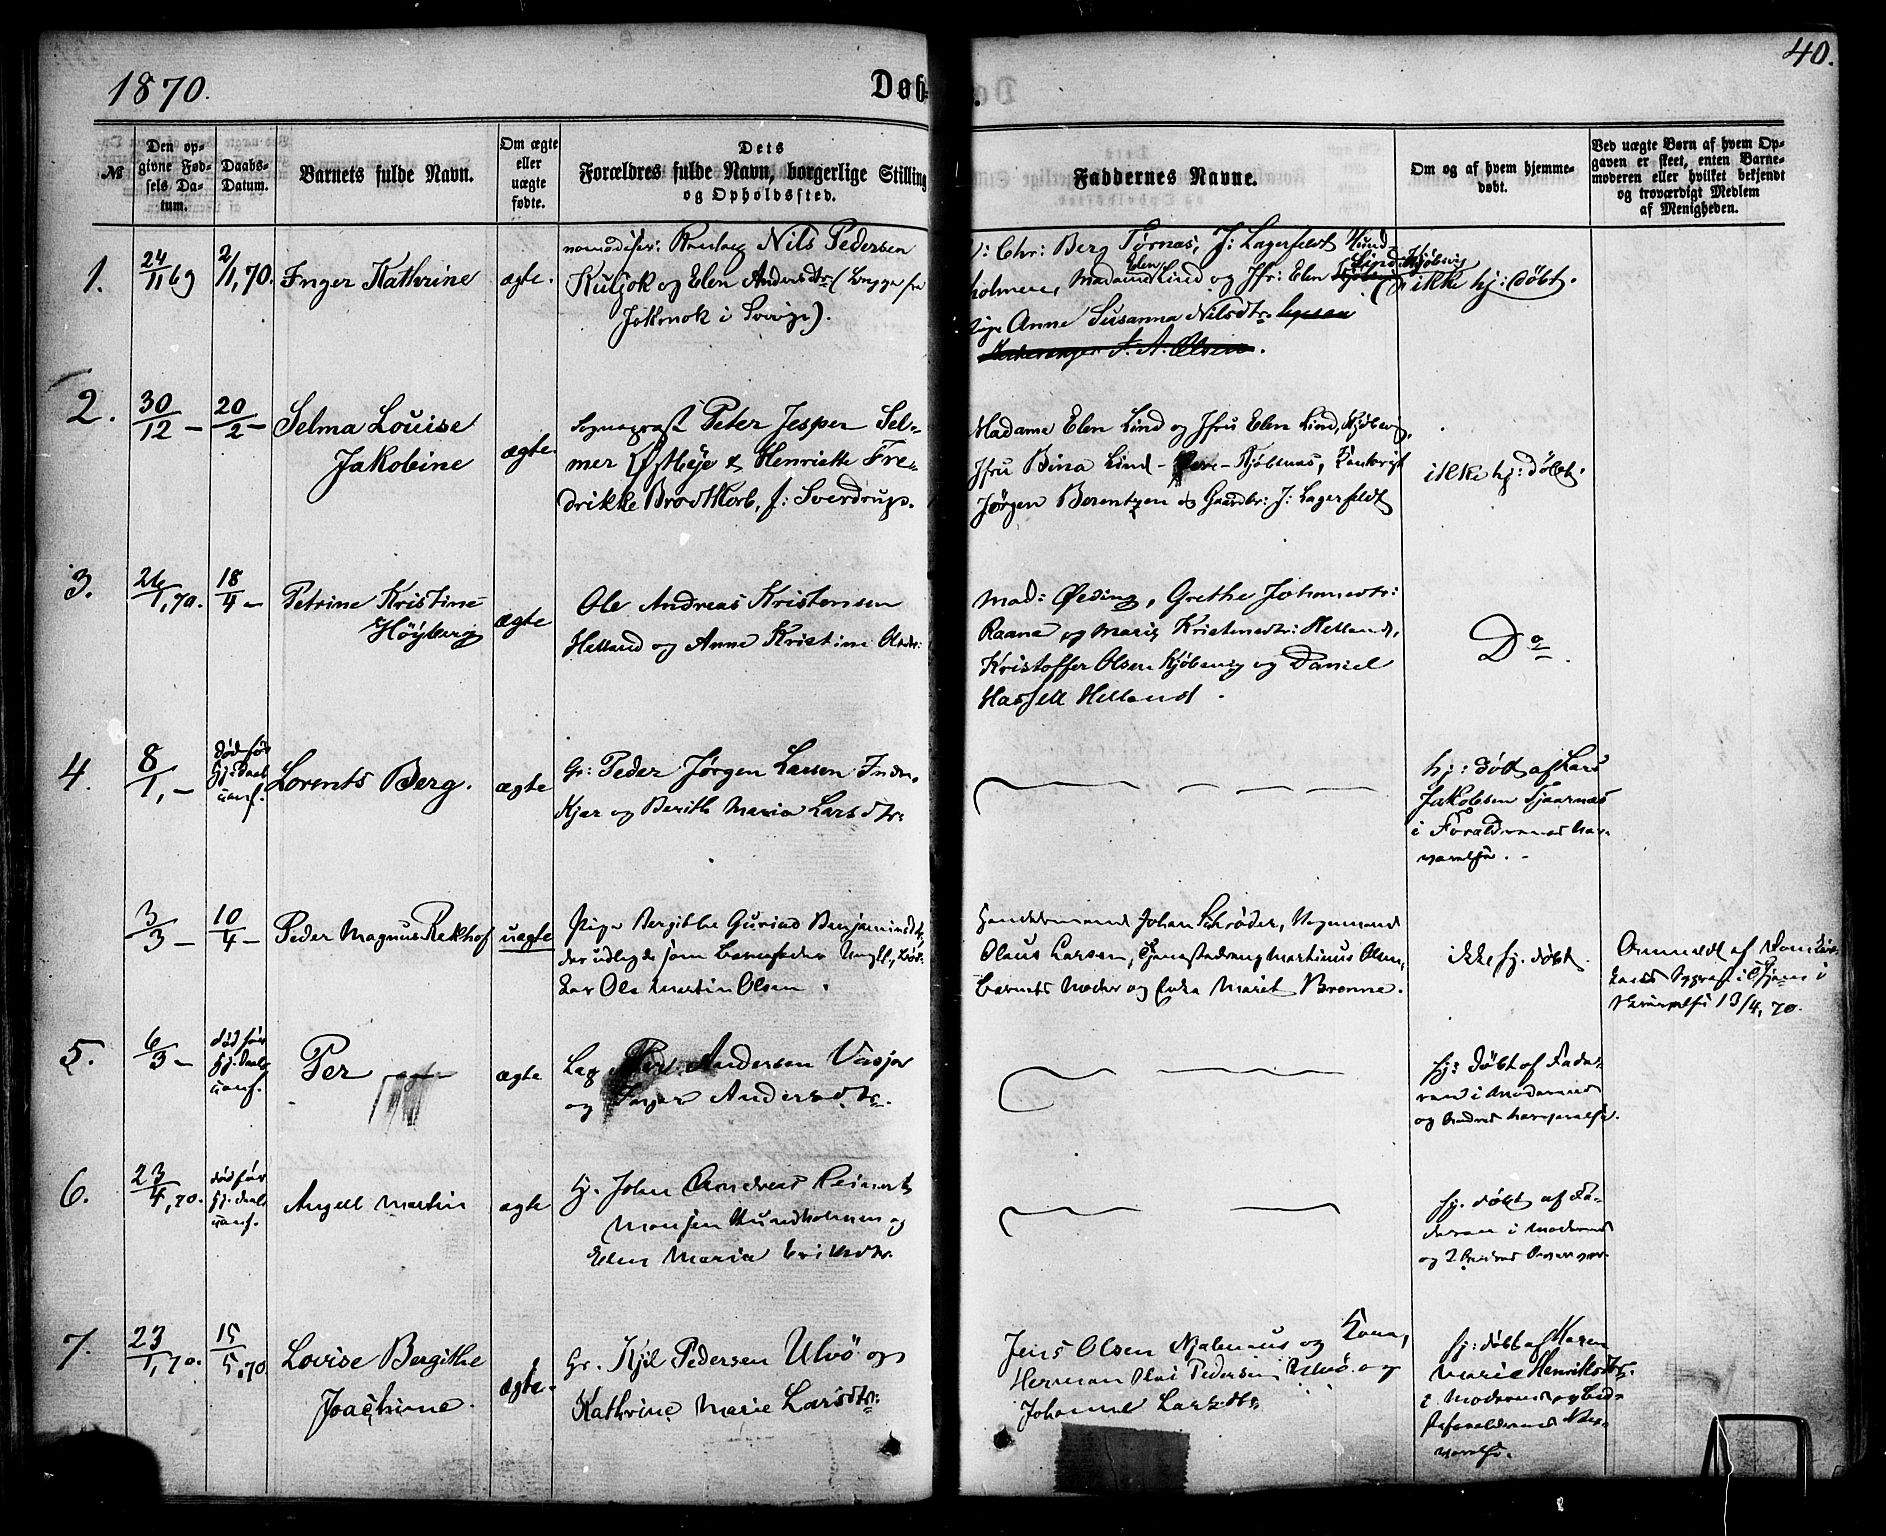 1870.
Døb-
40.
№
Den op-
givne Fød-
sels Da-
tum.
Daabs-
Datum.
Barnets fulde Navn.
Om ægte
eller
uægte
fødte.
Dets
Forældres fulde Navn, borgerlige Stilling
og Opholdssted.
Faddernes Navne.
Om og af hvem hjemme-
døbt.
Ved uægte Børn af hvem Op-
gaven er skeet, enten Barne-
moderen eller hvilket bekjendt
og troværdigt Medlem
af Menigheden.
1.
24/11 69
2/1, 70.
Inger Kathrine
ægte.
Nils Pedersen
Kuljok og Elen Andersdtr: (
Jokmok i Sverige).
Chr: Berg Tørnæs, J: Lagerfeldt Hund-
holmen, Madame Elen Lind og Jfr: Elen Lind Kjøbsvig
Anne Susanna Nilsdtr:
ikke hj: døbt.
2.
30/12 -
20/2 -
Selma Louise
Jakobine
ægte
Sognepræst Peter Jesper Sel-
mer Østbye & Henriette Fre-
drikke Brodtkorb, f: Sverdrup.
Madame Elen Lind og Jfru Elen Lind, Kjøbsvig,
Jfru Bina Lind - Kjøbsnæs,
Jørgen Berentzen & Gaardbr: J: Lagerfeldt
ikke hj: døbt.
3.
26/1, 70.
18/4 -
Petrine Kristine
Höyberg
ægte
Ole Andreas Kristensen
Helland og Anne Kristine Olsdtr:
Mad: Øeding, Grethe Johansdtr:
Raana og Marie Kristensdtr: Helland,
Kristoffer Olsen Kjøbsvig og Daniel
Hassell Helland.
Do.
4.
8/1, -
død før
hj: Daab
Lorents Berg.
ægte
Gr: Peder Jørgen Larsen Inden-
Kjær og Berith Maria Larsdtr:
hj: døbt af Lars
Jakobsen Tjaarnæs
i Forældrenes Nær-
værelse. -
3/3 -
10/4 -
Peder Magnus Rekhof
uægte
Pige Bergitha Gurina Benjaminsdtr,
der udlagde som Barnefader Ungk.,
Ole Martin Olsen.
Handelsmand Johan Schrøder,
Olaus Larsen, Tjenestedreng Martinus Olsen,
Barnets Moder og Enke Marit Brønne.
ikke hj. døbt.
Anmeldt af
13/4, 70.
5.
6/3 -
død før
hj: Daab
Per
ægte
Lap Per Andersen Vasjer
og Inger Andersdtr:
hj: døbt af Fade-
ren i Moderens
og Andres Nærværelse.
6.
23/4, 70.
død før
hj. Daab
Angell Martin
ægte
Hj. John Andreas Reinert
Monsen Hundholmen og
Elen Maria Eriksdtr.
hj. døbt af Fa-
deren i Moderens
og 2
7.
23/1, 70.
15/5, 70
Lovise Bergithe
Joachime.
ægte.
Gr. Kjil Pedersen Ulvö og
Kathrine Marie Larsdtr:
Jens Olsen Hjalmnæs og Kone,
Herman Olai Pedersen Ulvö og
Johanne Larsdtr.
hj: døbt af Maren
Marie Henriksdtr.
i Moderens og Bed-
steforældrenes Nær-
værelse.